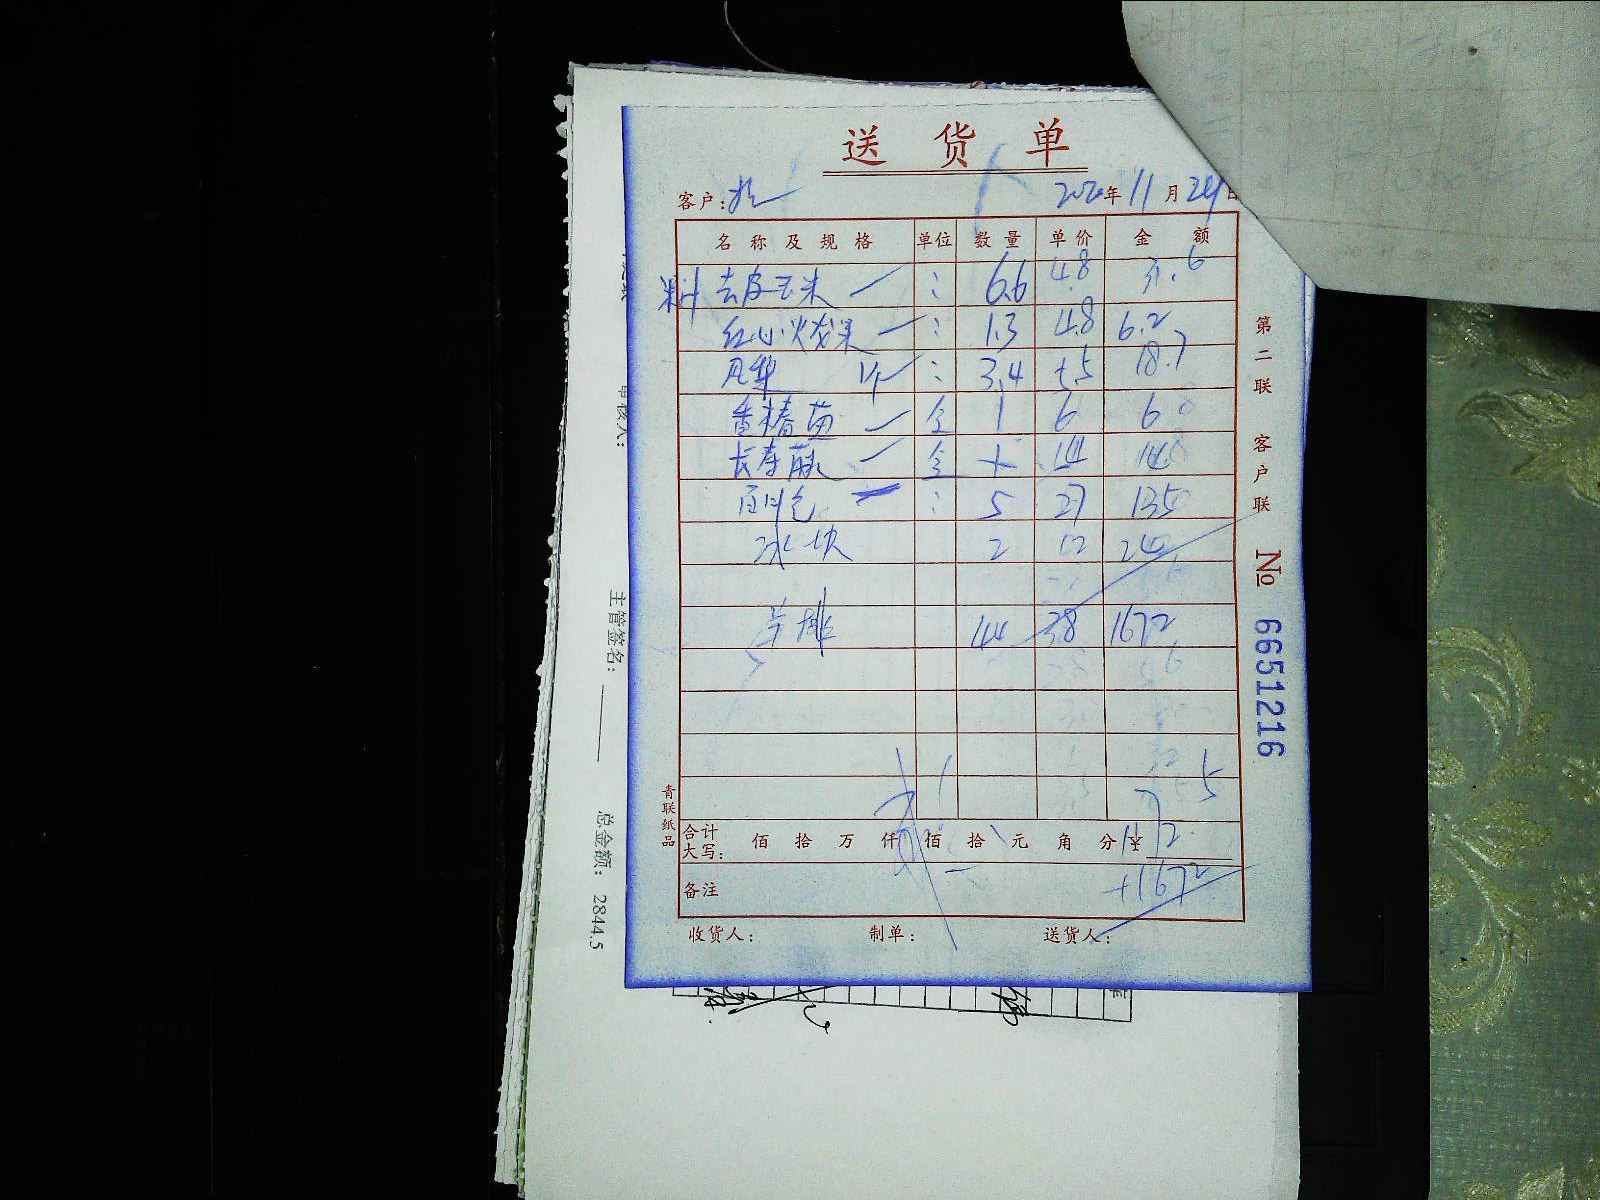 送货单
客户: 2020年11月24日
名称及规格 单位 数量 单价 金额
料 去皮玉米 : 6.6 4.8 31.6
红心火龙果 : 1.3 4.8 6.2
凤梨 1个 : 3.4 5.5 18.7
香椿苗 1 6 6
长寿 14 14
: 5 27 135
冰块 2 12 24
牛排 44 38 1672
合计大写: 佰 拾 万 仟 佰 拾 元 角 分 ¥
备注 +1672
收货人: 制单: 送货人:
第二联 客户联 № 6651216
青联纸品
审核人:
主管签名:
总金额: 2844.5